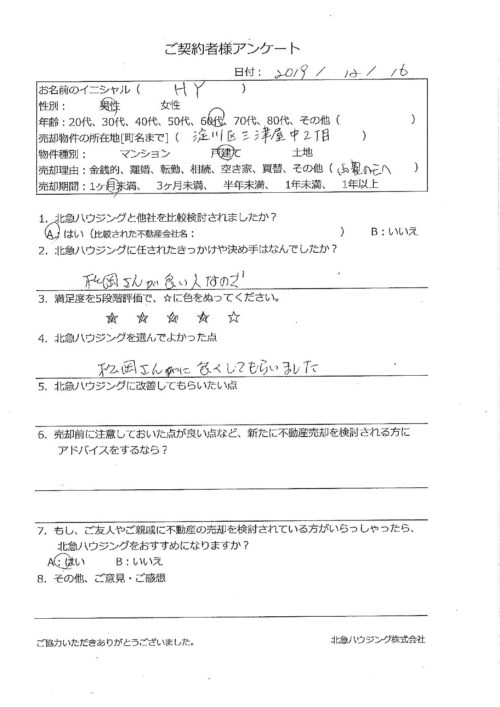 ご契約者様アンケート
日付： 2019 / 12 / 16
お名前のイニシャル（ HY ）
性別： 男性 女性
年齢：20代、30代、40代、50代、60代、70代、80代、その他（ ）
売却物件の所在地[町名まで]（ 淀川区三津屋中2丁目 ）
物件種別： マンション 戸建て 土地
売却理由：金銭的、離婚、転勤、相続、空き家、買替、その他（ ）
売却期間：1ヶ月未満、 3ヶ月未満、 半年未満、 1年未満、 1年以上
1. 北急ハウジングと他社を比較検討されましたか？
A：はい（比較された不動産会社名： ） B：いいえ
2. 北急ハウジングに任されたきっかけや決め手はなんでしたか？
松岡さんが良い人なので
3. 満足度を5段階評価で、☆に色をぬってください。
★ ★ ★ ★ ☆
4. 北急ハウジングを選んでよかった点
松岡さんに良くしてもらいました
5. 北急ハウジングに改善してもらいたい点
6. 売却前に注意しておいた点が良い点など、新たに不動産売却を検討される方に
アドバイスをするなら？
7. もし、ご友人やご親戚に不動産の売却を検討されている方がいらっしゃったら、
北急ハウジングをおすすめになりますか？
A：はい B：いいえ
8. その他、ご意見・ご感想
ご協力いただきありがとうございました。 北急ハウジング株式会社